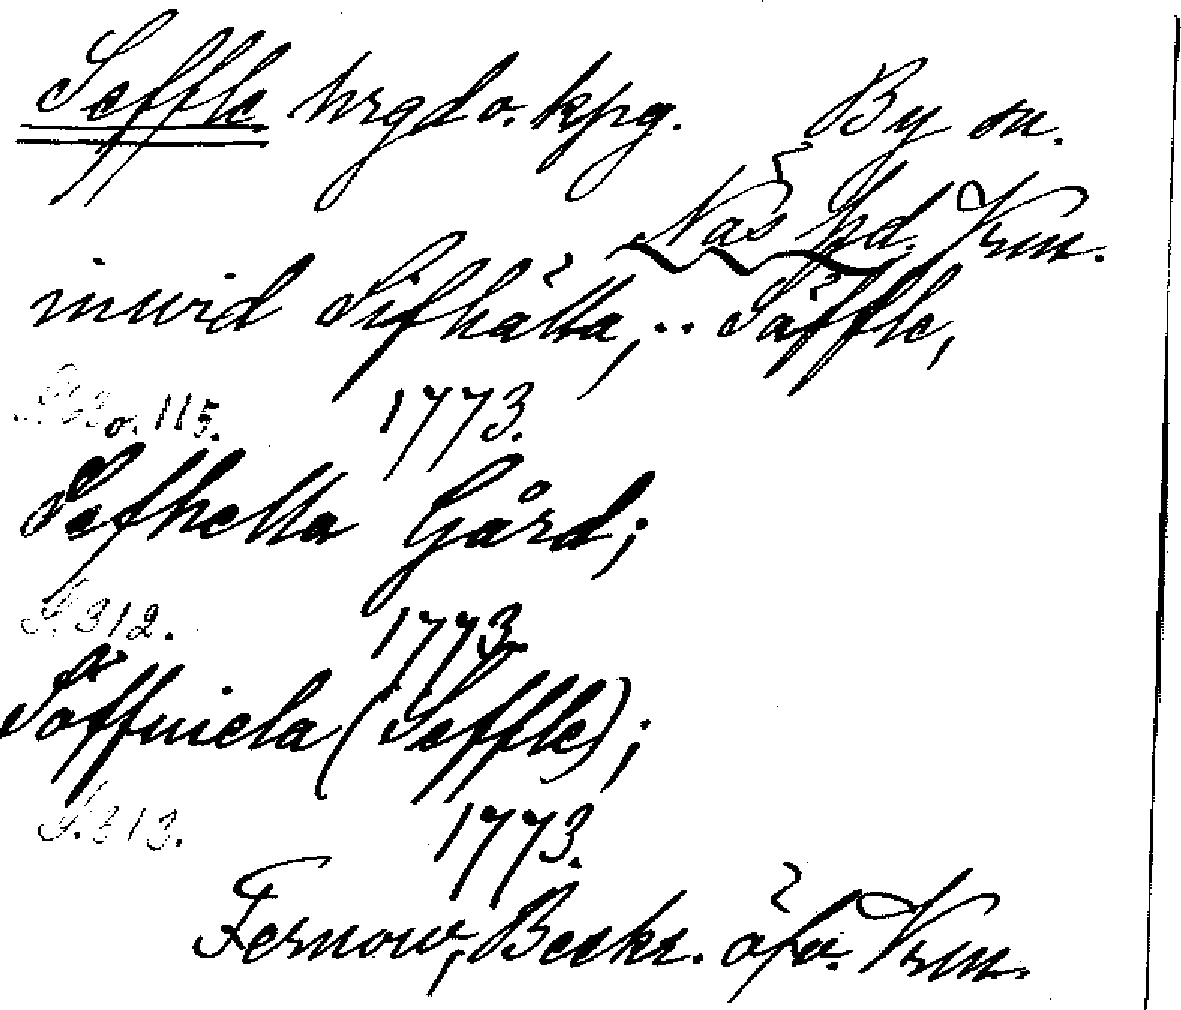 Seffle hrgd o. kpg. By sn.
Näs hd. Vrm.
invid Sifhälla, .. Säffle,
o. 115. 1773.
Sefhella Gård;
S. 312. 1773.
Söffniela (Seffle);
S. 313. 1773.
Fernow, Beskr. öfv. Vrm.